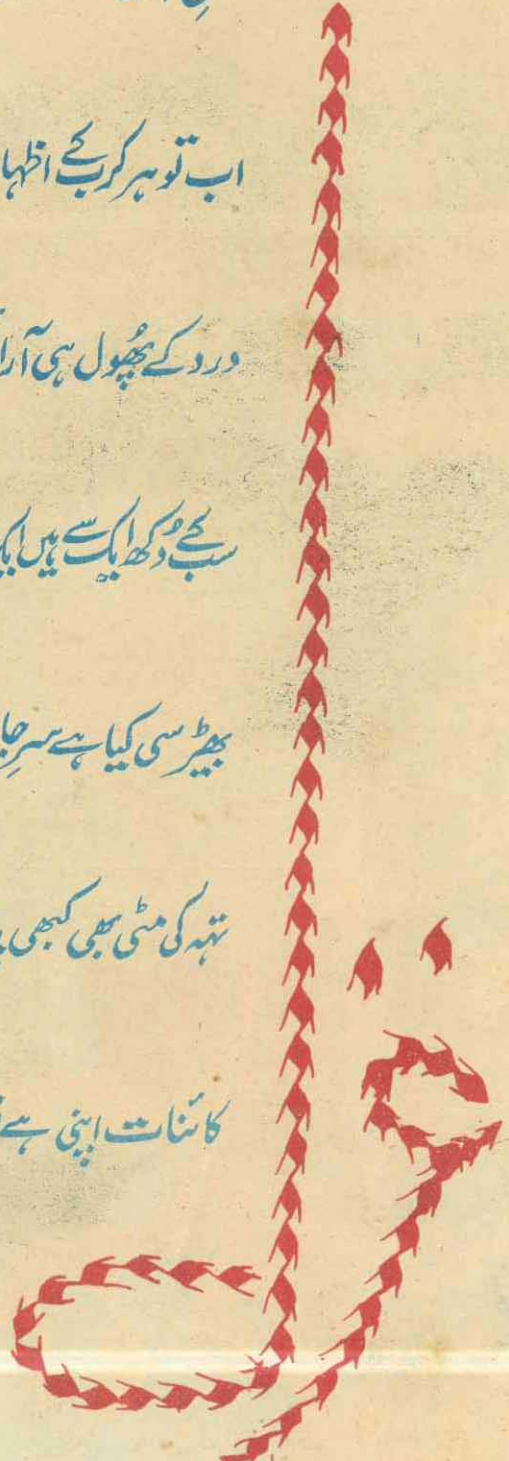 اب تو ہر کرب کے اظہا
درد کے پھول ہی آرا
سب کے دکھ ایک سے ہیں ایک
بھیڑ سی کیا ہے سرِ جا
تہہ کی مٹی بھی کبھی
کائنات اپنی ہے